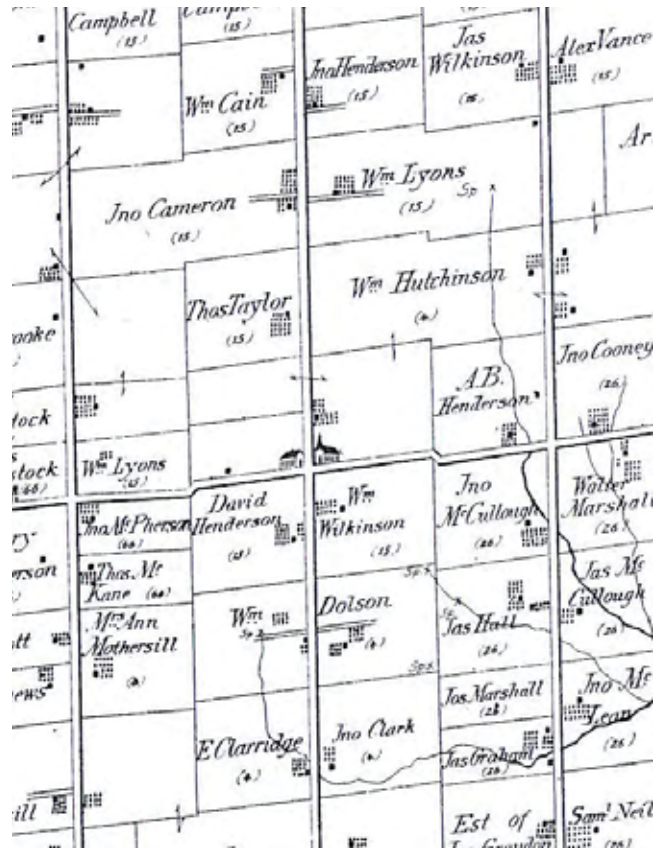 Campbell
(15)
(15)
Wm Cain
(15)
Jno Henderson
(15)
Jas
Wilkinson
(15)
Alex Vance
(15)
Jno Cameron
(15)
Wm Lyons
(15)
Sp
Wm Hutchinson
(6)
Thos Taylor
(15)
A.B.
Henderson
Jno Cooney
(26)
Wm Lyons
(15)
(66)
Jno McPherson
(66)
David
Henderson
(15)
Wm
Wilkinson
(15)
Jno
McCullough
(26)
Walter
Marshall
(26)
Thos Mc
Kane (66)
Mrs Ann
Mothersill
(6)
Wm
Dolson
(6)
Sp.
Sp.
Jas Hall
(26)
Jas Mc
Cullough
(26)
Sps.
Jos Marshall
(26)
Jno Mc
Lean
(26)
E Clarridge
(6)
Jno Clark
(6)
Jas Graham
(26)
Est of
Saml Neil
(26)